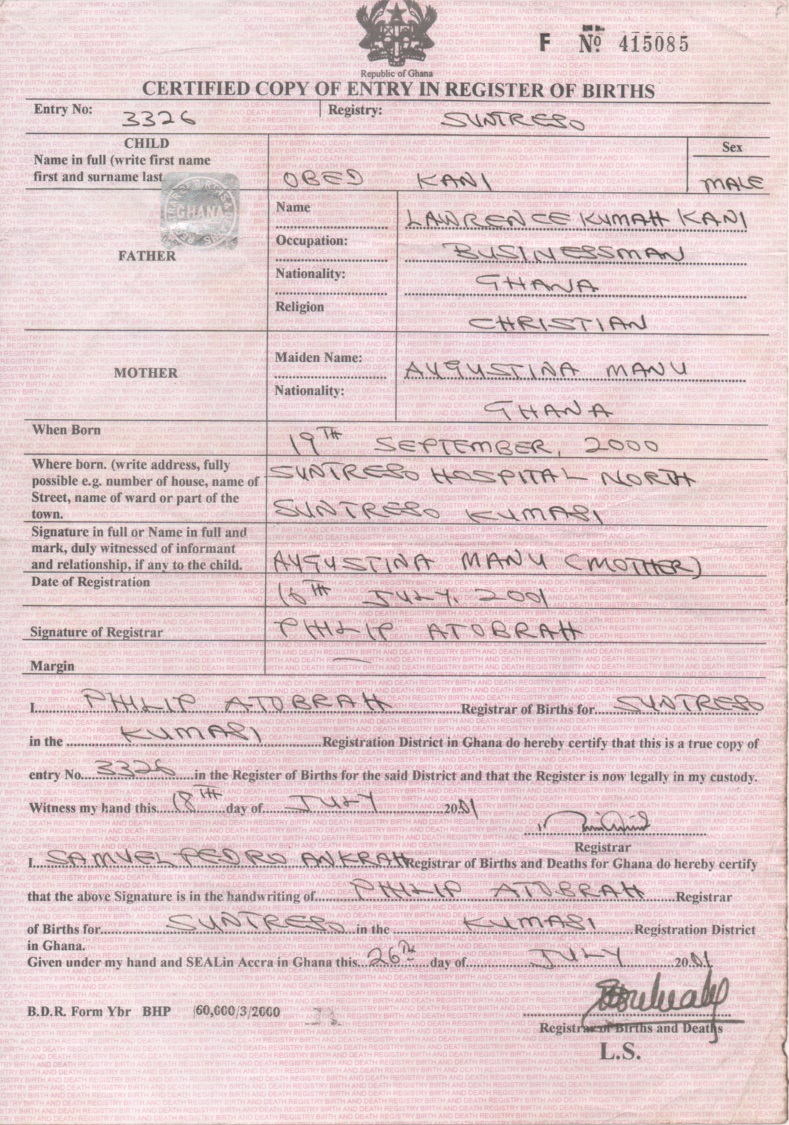 Republic of Ghana
F No. 415085
CERTIFIED COPY OF ENTRY IN REGISTER OF BIRTHS
Entry No: 3326 Registry: SUNTRESO
CHILD
Name in full (write first name
first and surname last
OBED KANI
Sex
MALE
GHANA
FATHER
Name LAWRENCE KUMAH KANI
Occupation: BUSINESSMAN
Nationality: GHANA
Religion CHRISTIAN
MOTHER
Maiden Name: AUGUSTINA MANU
Nationality: GHANA
When Born 19TH SEPTEMBER, 2000
Where born. (write address, fully
possible e.g. number of house, name of
Street, name of ward or part of the
town.
SUNTRESO HOSPITAL NORTH
SUNTRESO KUMASI
Signature in full or Name in full and
mark, duly witnessed of informant
and relationship, if any to the child.
AUGUSTINA MANU (MOTHER)
Date of Registration 16TH JULY. 2001
Signature of Registrar PHILIP ATOBRAH
Margin —
I PHILIP ATOBRAH Registrar of Births for SUNTRESO
in the KUMASI Registration District in Ghana do hereby certify that this is a true copy of
entry No. 3326 in the Register of Births for the said District and that the Register is now legally in my custody.
Witness my hand this 18TH day of JULY 2001
Registrar
I. SAMUEL PEDRO ANKRAH Registrar of Births and Deaths for Ghana do hereby certify
that the above Signature is in the handwriting of PHILIP ATOBRAH Registrar
of Births for SUNTRESO in the KUMASI Registration District
in Ghana.
Given under my hand and SEALin Accra in Ghana this 26th day of JULY 2001
B.D.R. Form Ybr BHP 160,000/3/2000
Registrar of Births and Deaths
L.S.